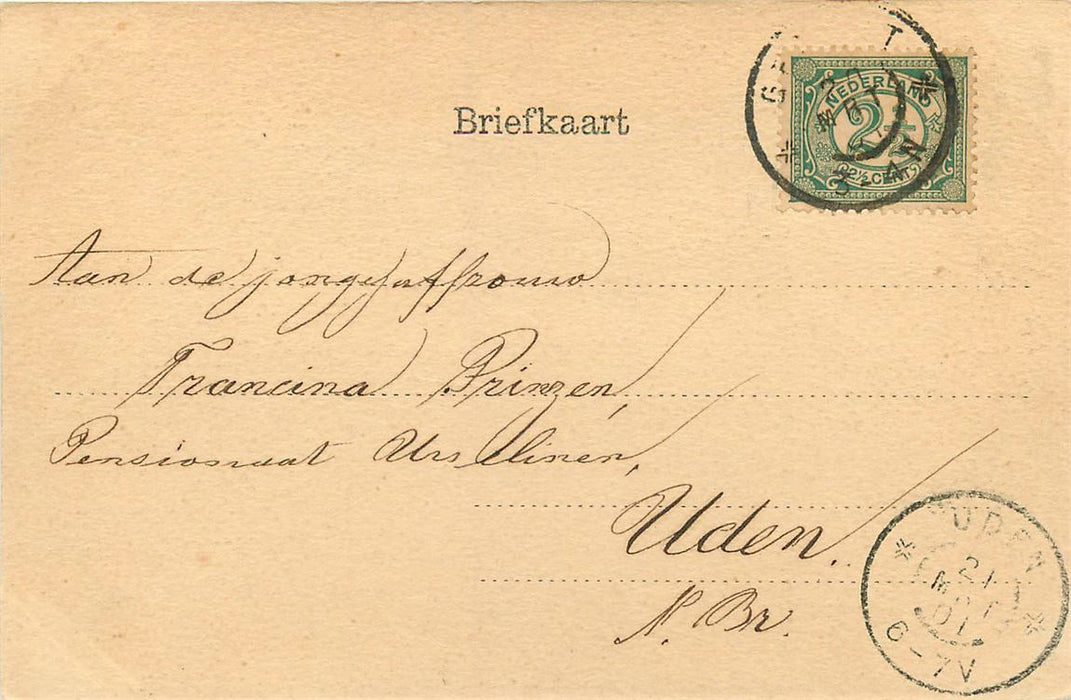 Briefkaart
NEDERLAND
2½
2½ CENT
MRT
3-4N
Aan de jongejuffrouw
Francina Prinzen,
Pensionaat Urselinen,
Uden,
N. Br.
UDEN
21
MRT
01
6-7V